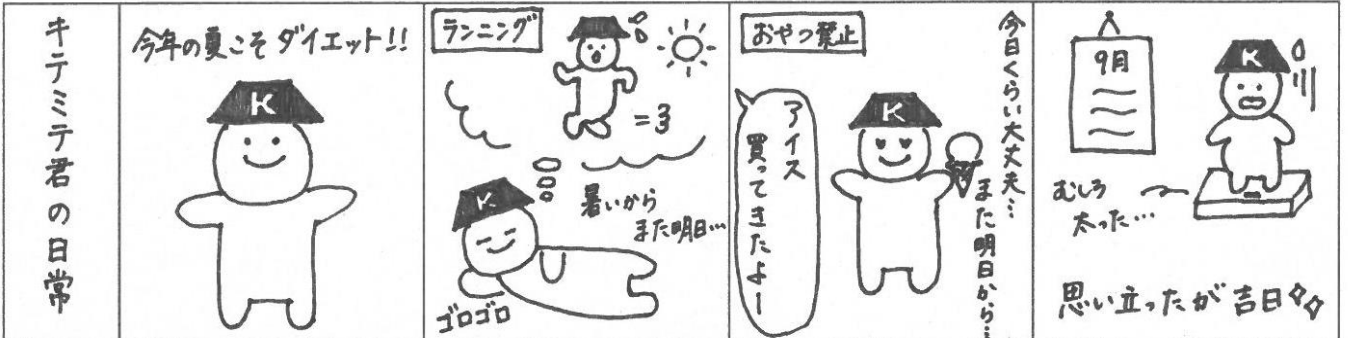 キテミテ君の日常
今年の夏こそダイエット!!
K
ランニング
=3
K
暑いから
また明日…
ゴロゴロ
おやつ禁止
アイス
買ってきたよー
K
今日くらい大丈夫…
また明日から…
9月
K
むしろ
太った…
思い立ったが吉日